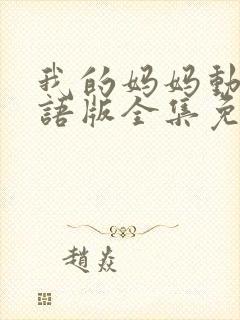 我的妈妈動
語版全集免
趙焱